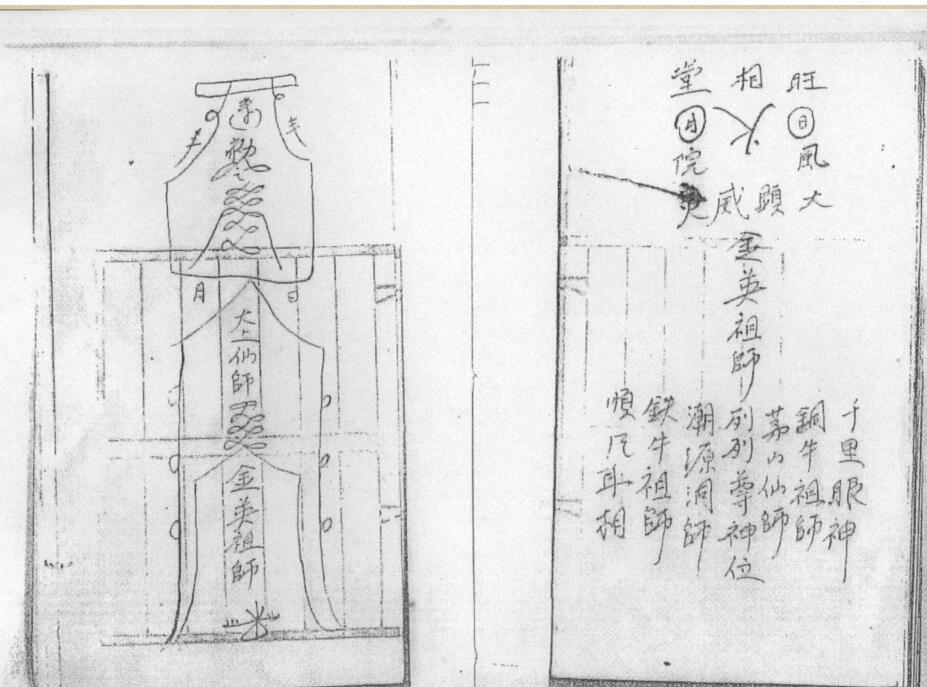 旺相堂
日月
風火院
大顯威
金英祖師
千里眼神
銅牛祖師
茅山仙師
列列尊神位
潮源洞師
鉄牛祖師
順风耳相
勅
日
月
大上仙師
金英祖師